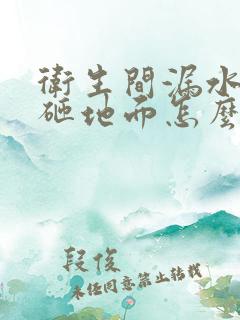 衛生間漏水
砸地而怎麼
段俊
未經同意禁止转载